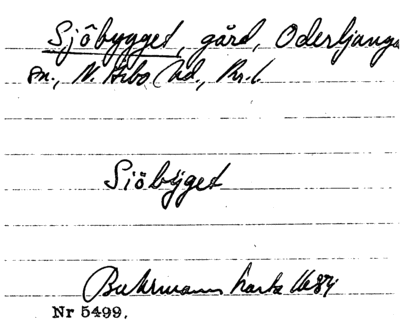 Sjöbygget, gård, Oderljunga
sn., N. Åsbo hd., Kr. l.
Siöbÿget
Buhrmann karta 1684
Nr 5499.